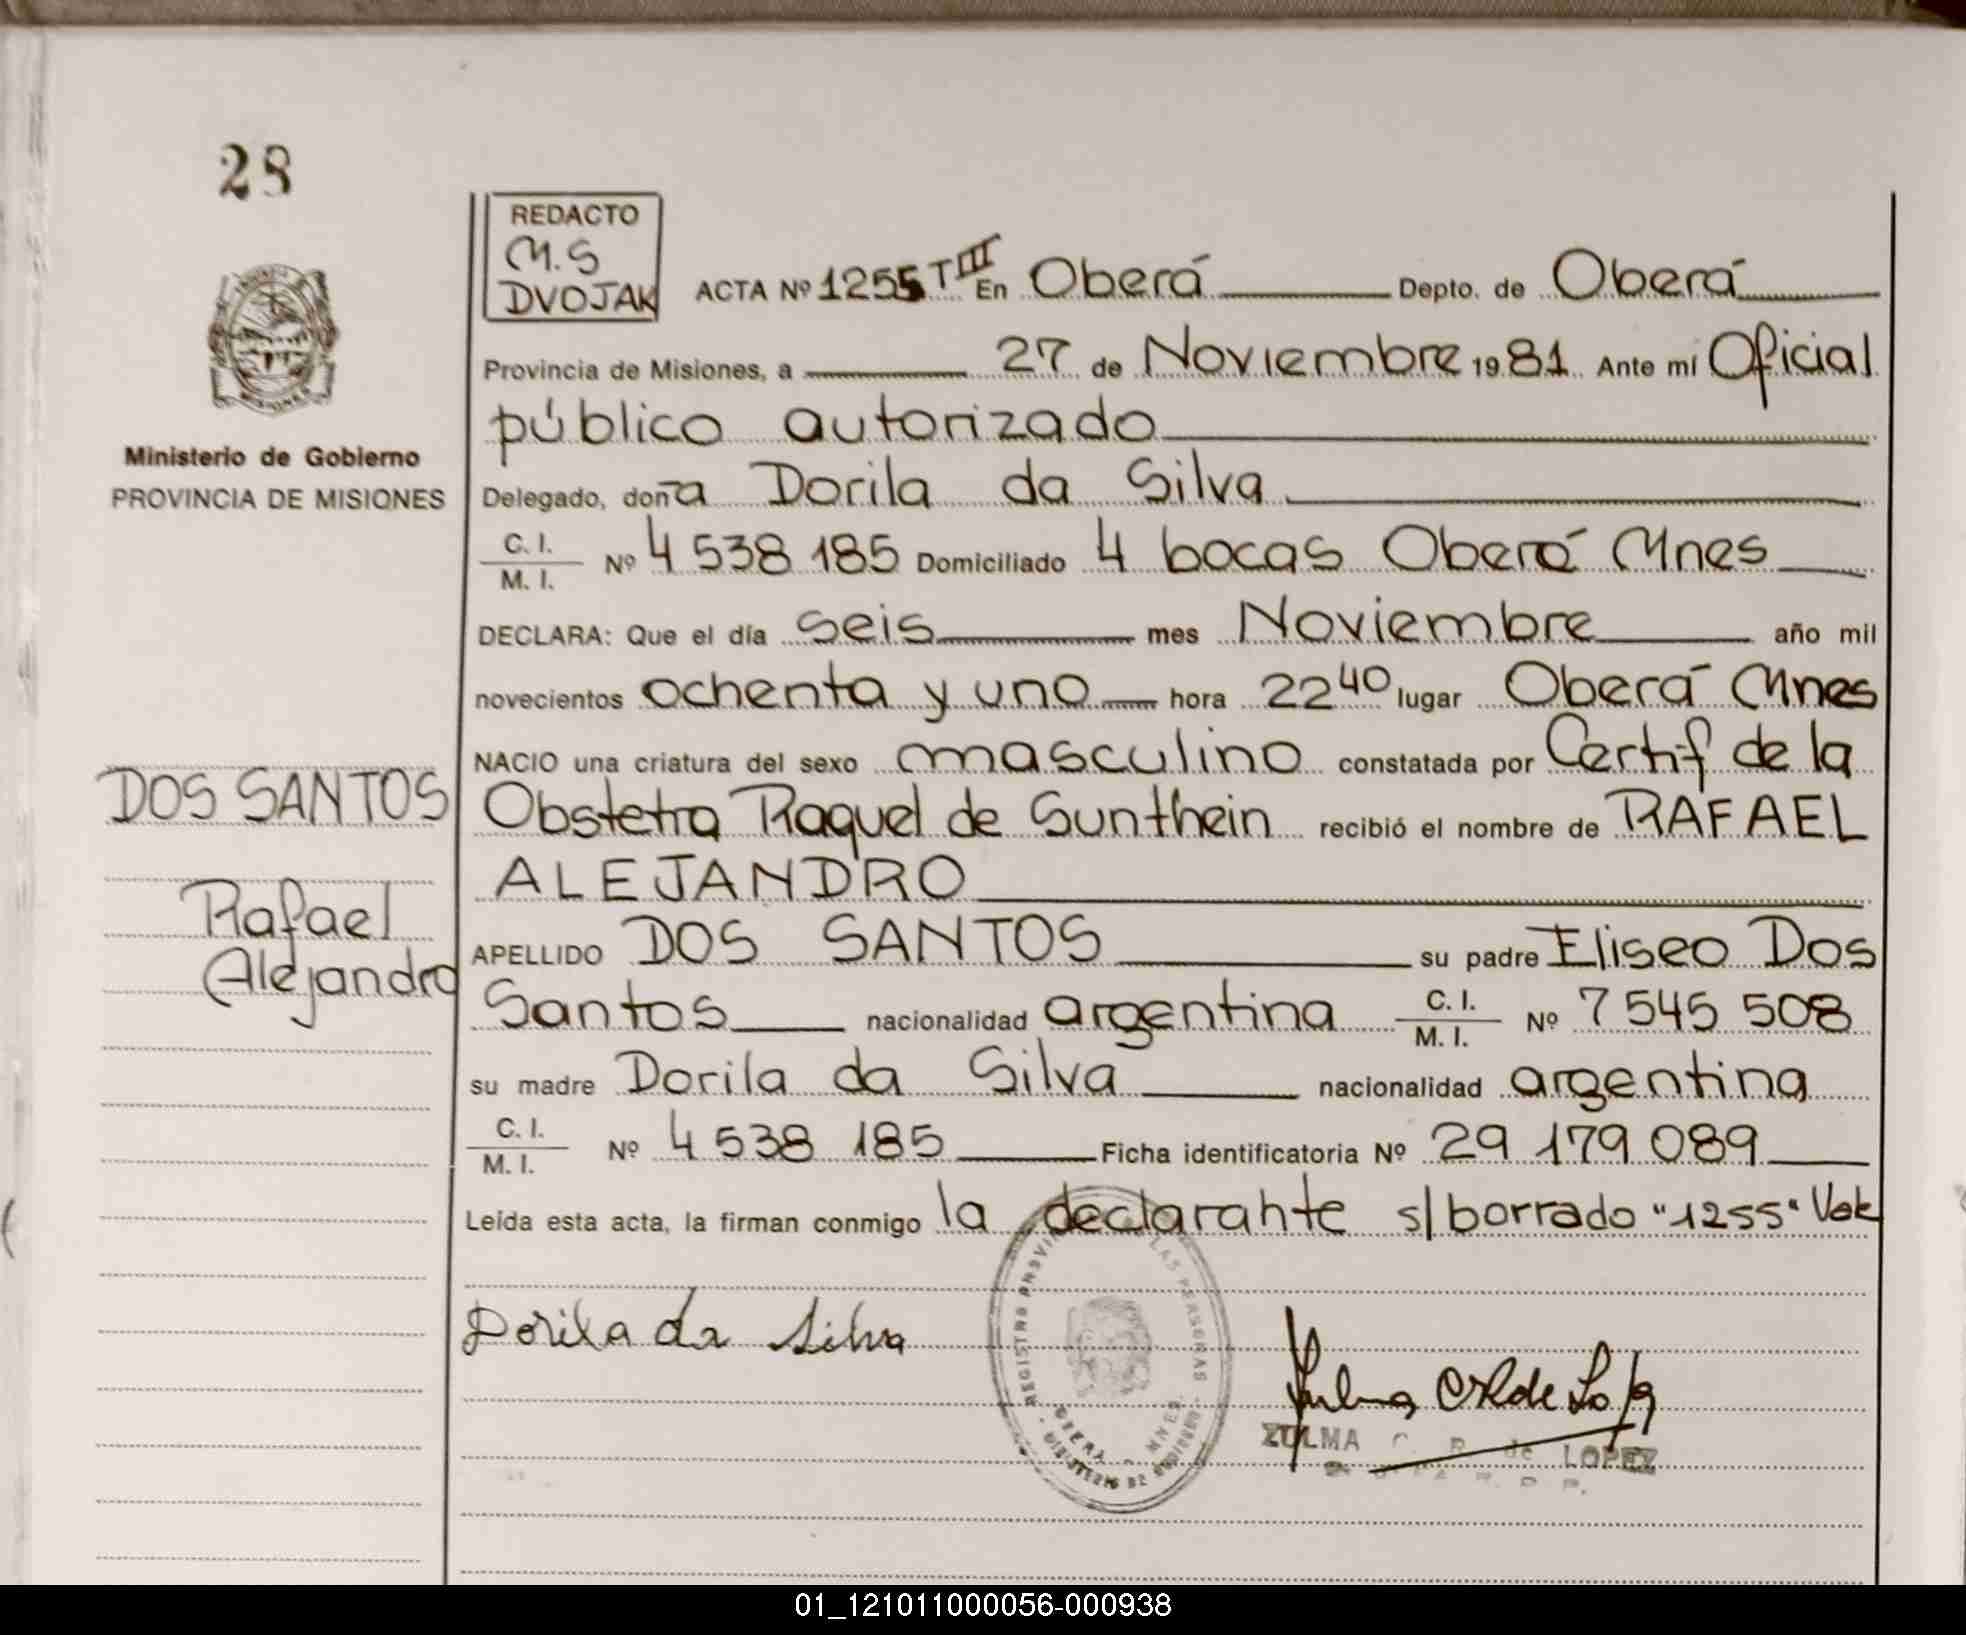 28
REDACTO
M.S
DVOJAK
ACTA Nº 1255 T III En Oberá Depto. de Oberá
Provincia de Misiones, a 27 de Noviembre 1981 Ante mí Oficial
público autorizado
Ministerio de Gobierno
PROVINCIA DE MISIONES
Delegado, doña Dorila da Silva
C. I.
M. I. Nº 4 538 185 Domiciliado 4 bocas Oberá Mnes
DECLARA: Que el día seis mes Noviembre año mil
novecientos ochenta y uno hora 22 40 lugar Oberá Mnes
NACIO una criatura del sexo masculino constatada por Certif de la
DOS SANTOS
Obstetra Raquel de Sunthein recibió el nombre de RAFAEL
ALEJANDRO
Rafael
Alejandro
APELLIDO DOS SANTOS su padre Eliseo Dos
Santos nacionalidad argentina C. I.
M. I. Nº 7 545 508
su madre Dorila da Silva nacionalidad argentina
C. I.
M. I. Nº 4 538 185 Ficha identificatoria Nº 29 179 089
Leída esta acta, la firman conmigo la declarante s/borrado "1255" Vale
Dorila da Silva
ZULMA C. R. de LOPEZ
01_121011000056-000938